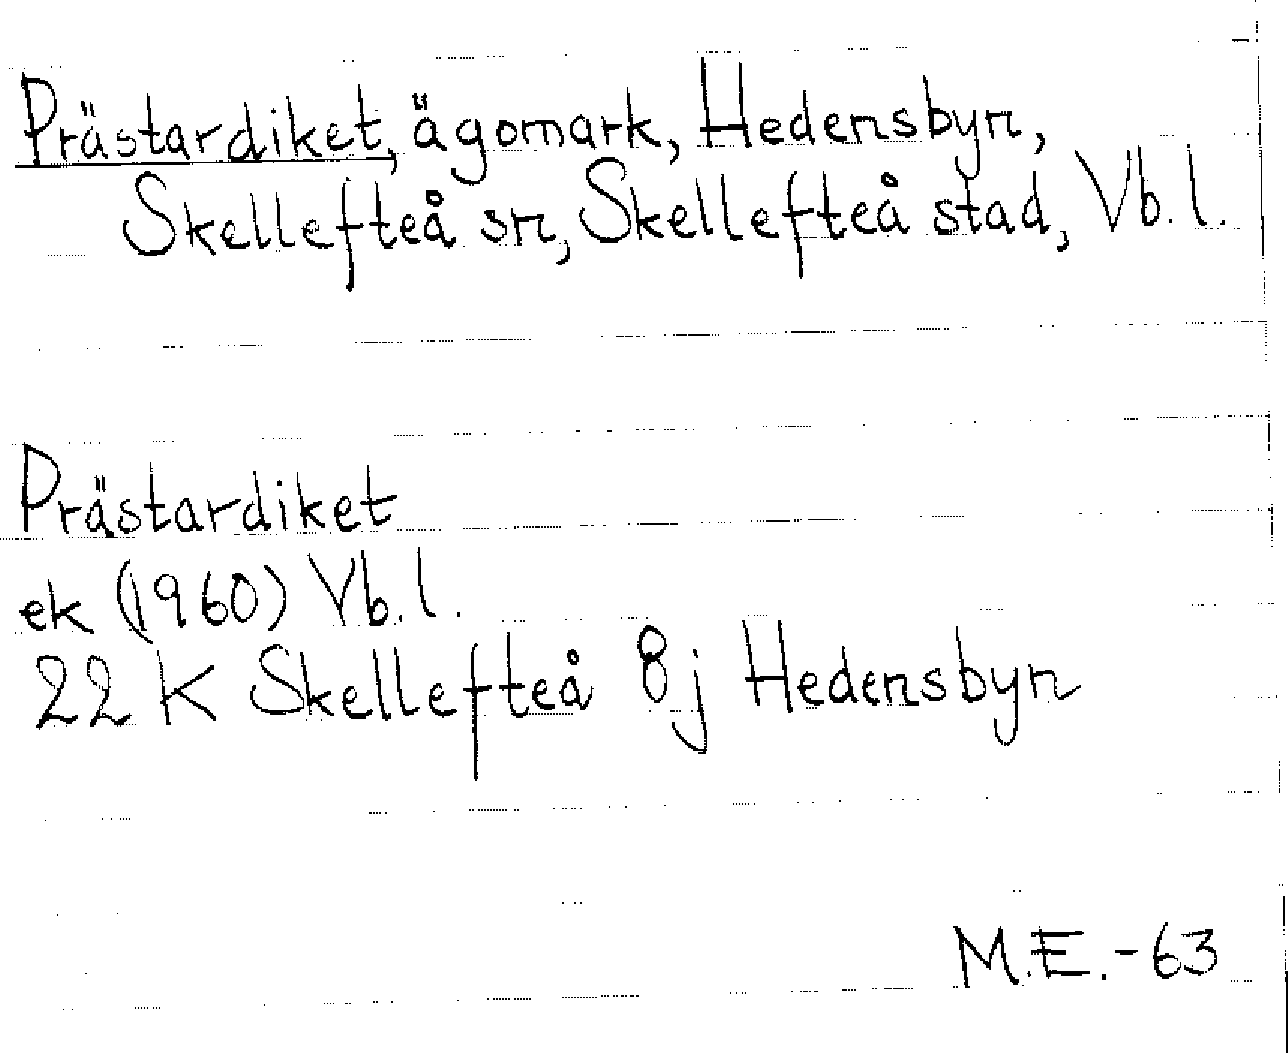 Prästardiket, ägomark, Hedensbyn,
Skellefteå sn, Skellefteå stad, Vb. l.
Prästardiket
ek (1960) Vb. l.
22 K Skellefteå 8j Hedensbyn
M.E.-63